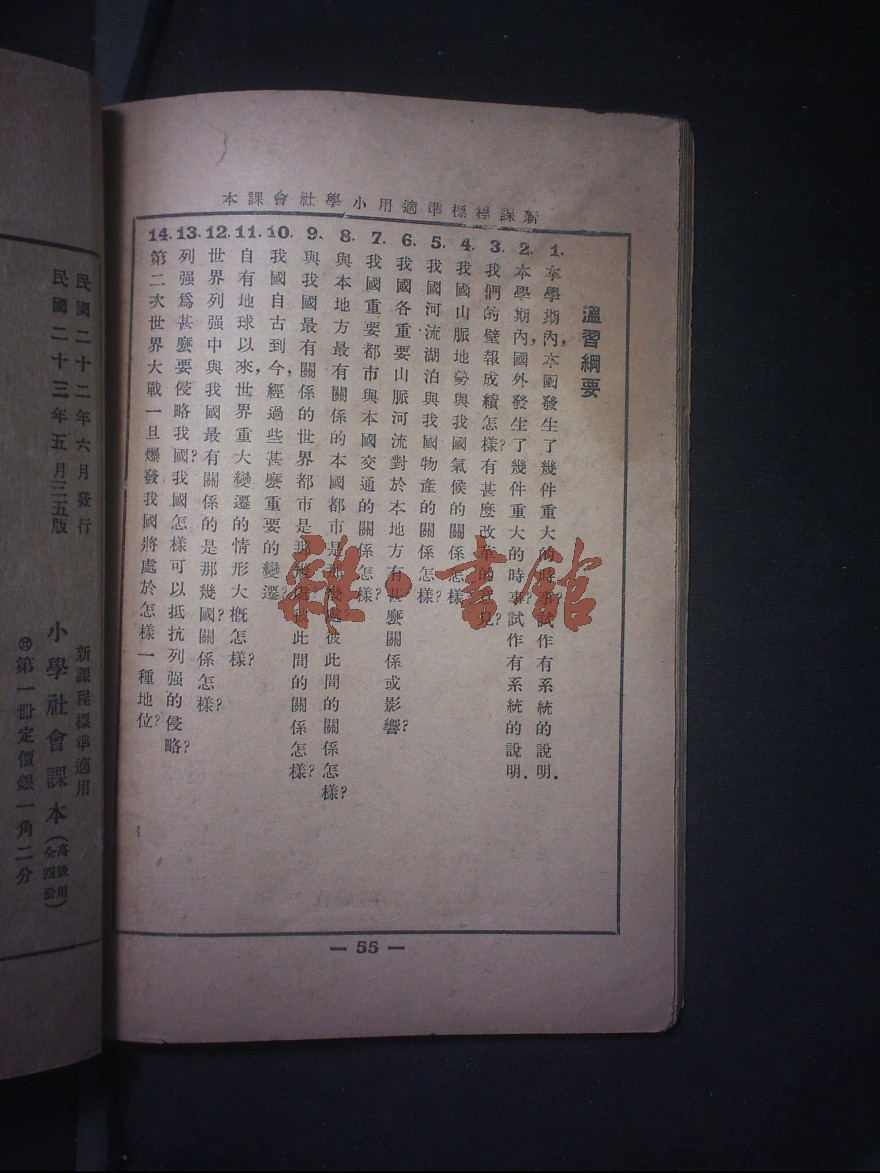 新課程標準適用小學社會課本
溫習綱要
1. 本學期內,本國發生了幾件重大的時事?試作有系統的說明.
2. 本學期內,國外發生了幾件重大的時事?試作有系統的說明.
3. 我們的壁報成績怎樣?有甚麼改革的意見?
4. 我國山脈地勢與我國氣候的關係怎樣?
5. 我國河流湖泊與我國物產的關係怎樣?
6. 我國各重要山脈河流對於本地方有甚麼關係或影響?
7. 我國重要都市與本國交通的關係怎樣?
8. 與本地方最有關係的本國都市是那幾處?彼此間的關係怎樣?
9. 與我國最有關係的世界都市是那幾處?彼此間的關係怎樣?
10. 我國自古到今,經過些甚麼重要的變遷?
11. 自有地球以來,世界重大變遷的情形大概怎樣?
12. 世界列强中與我國最有關係的是那幾國?關係怎樣?
13. 列强爲甚麼要侵略我國?我國怎樣可以抵抗列强的侵略?
14. 第二次世界大戰一旦爆發我國將處於怎樣一種地位?
— 55 —
民國二十二年六月發行
民國二十三年五月三五版
新課程標準適用
小學社會課本(高級用全四冊)
第一冊定價銀一角二分
雜·書館